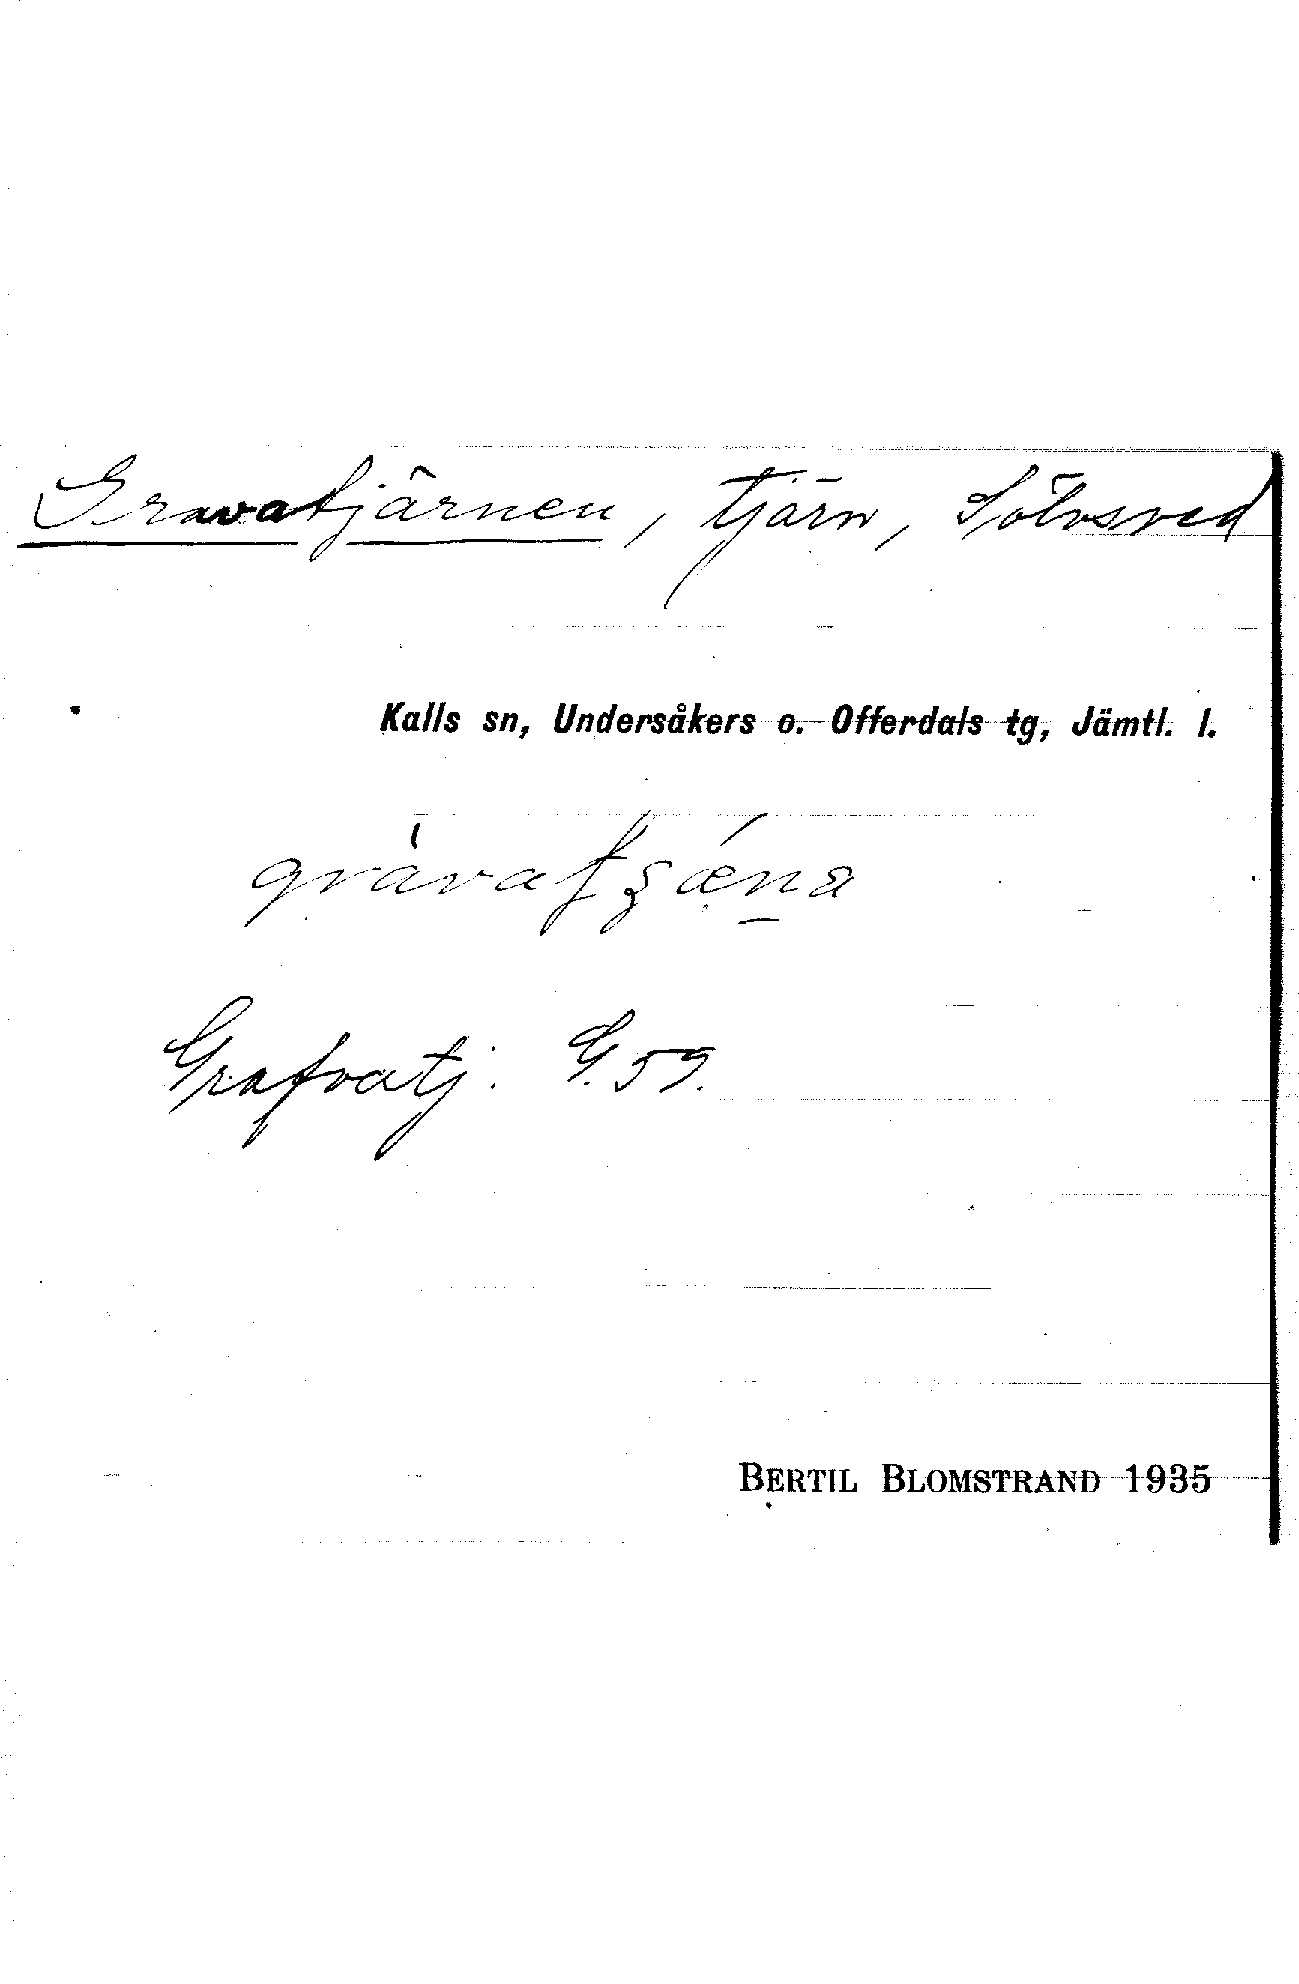 Gravatjärnen, tjärn, Sölvsved
Kalls sn, Undersåkers o. Offerdals tg, Jämtl. l.
Grafvatj. G. 59.
BERTIL BLOMSTRAND 1935